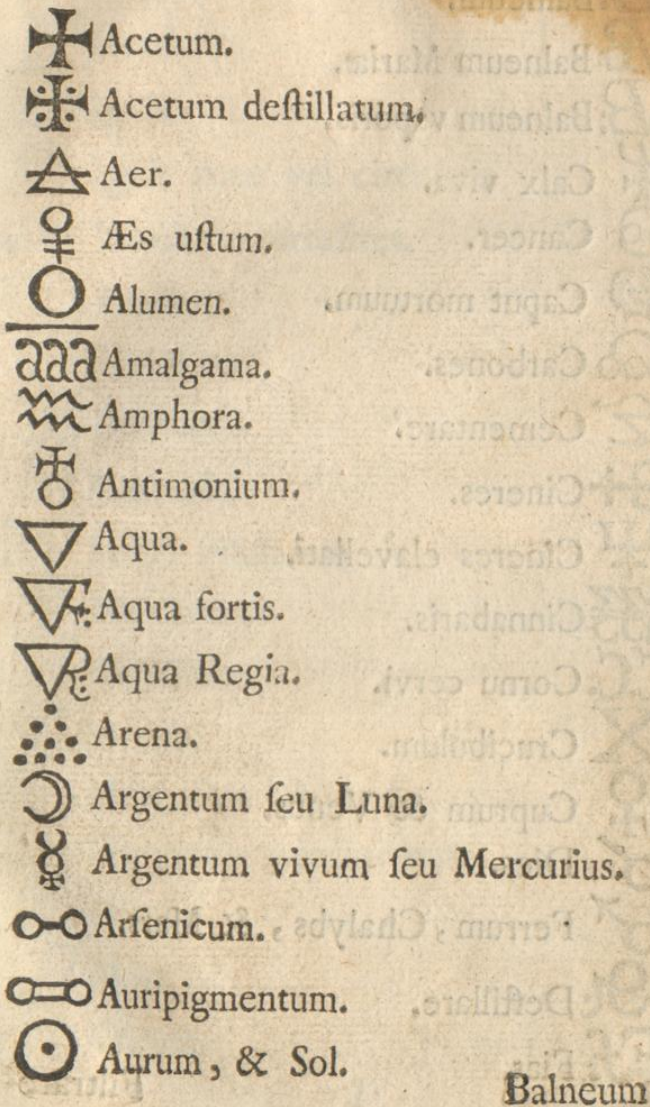 Acetum.
Acetum deſtillatum.
Aer.
Æs uſtum.
Alumen.
aaa Amalgama.
Amphora.
Antimonium.
Aqua.
Aqua fortis.
Aqua Regia.
Arena.
Argentum ſeu Luna.
Argentum vivum ſeu Mercurius.
Arſenicum.
Auripigmentum.
Aurum, & Sol.
Balneum